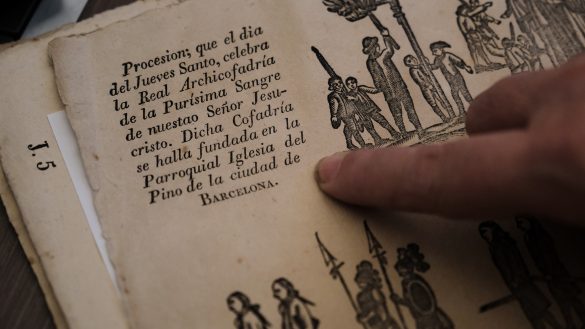 Procesion; que el dia
del Jueves Santo, celebra
la Real Archicofadría
de la Purísima Sangre
de nuestao Señor Jesu-
cristo. Dicha Cofadría
se halla fundada en la
Parroquial Iglesia del
Pino de la ciudad de
BARCELONA.
J.5